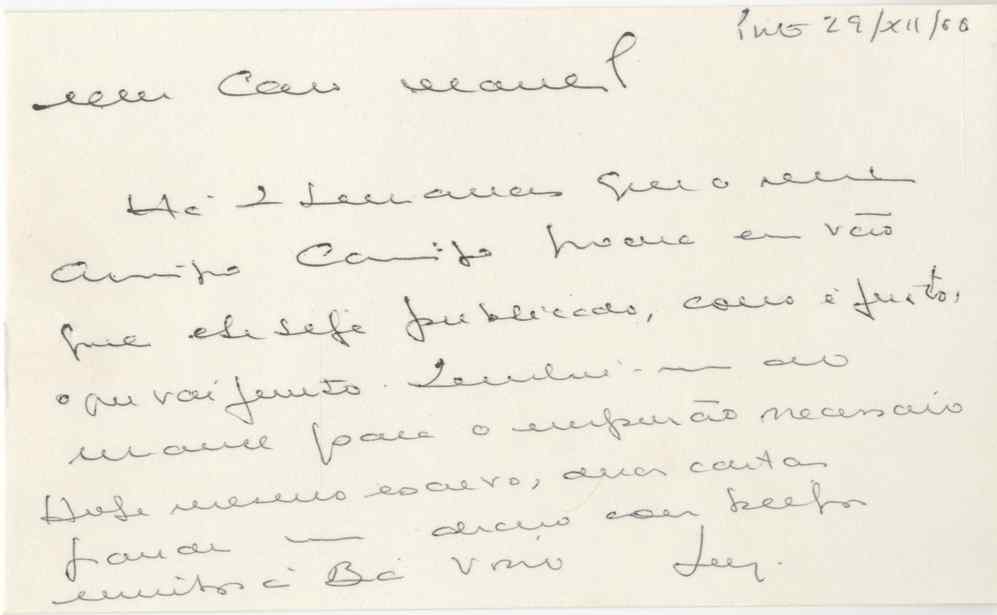 29/XII/66
Meu Caro Manel
Há 2 semanas que o meu
Amigo Camilo em vão
que ele seja publicado, como é justo,
o que vai junto. Lembrei-me do
Manel para o empurrão necessário
Hoje mesmo escrevo, duas cartas
com
muitos à Bá